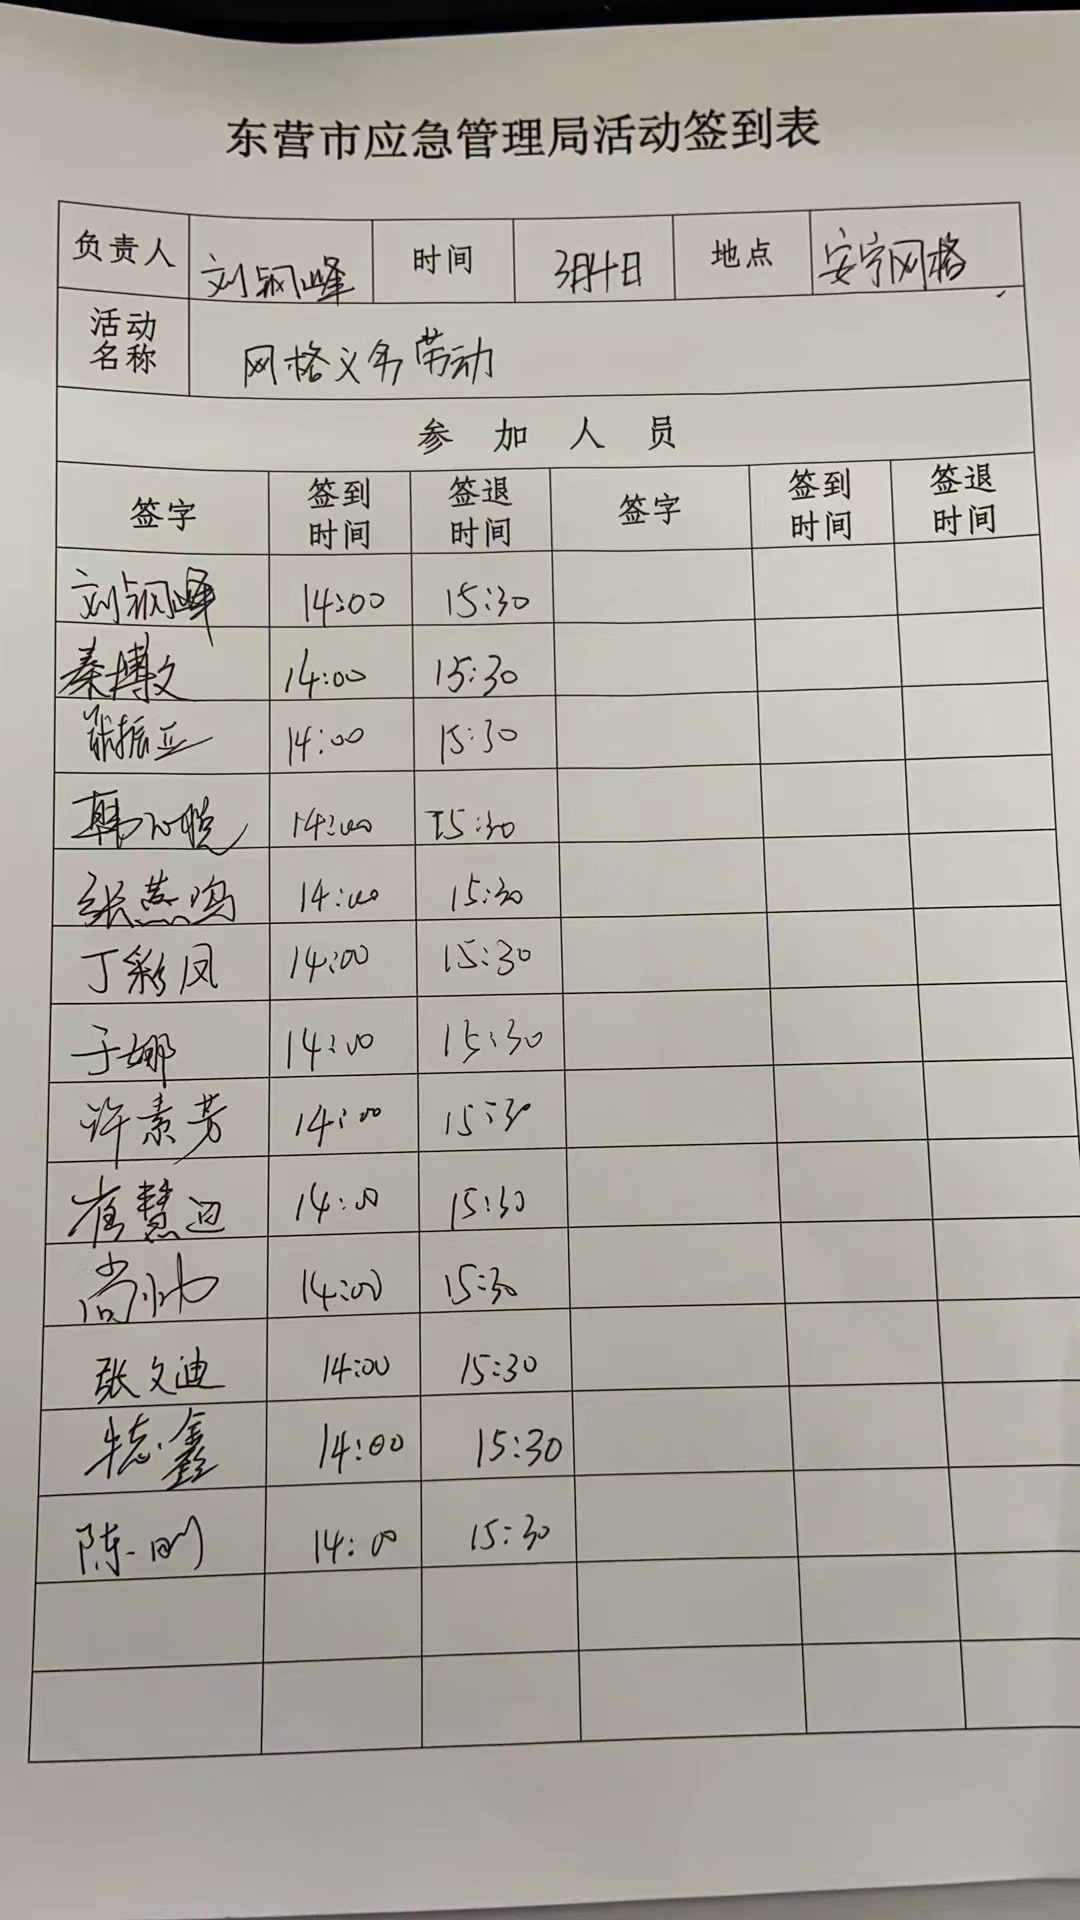 东营市应急管理局活动签到表
负责人 刘钢峰 时间 3月10日 地点 安宁网格
活动名称 网格义务劳动
参加人员
签字 签到时间 签退时间 签字 签到时间 签退时间
刘钢峰 14:00 15:30
秦博文 14:00 15:30
张振亚 14:00 15:30
韩心悦 14:00 15:30
张燕鸣 14:00 15:30
丁彩凤 14:00 15:30
于娜 14:00 15:30
许素芳 14:00 15:30
崔慧 14:00 15:30
尚帅 14:00 15:30
张文迪 14:00 15:30
鑫 14:00 15:30
陈刚 14:00 15:30